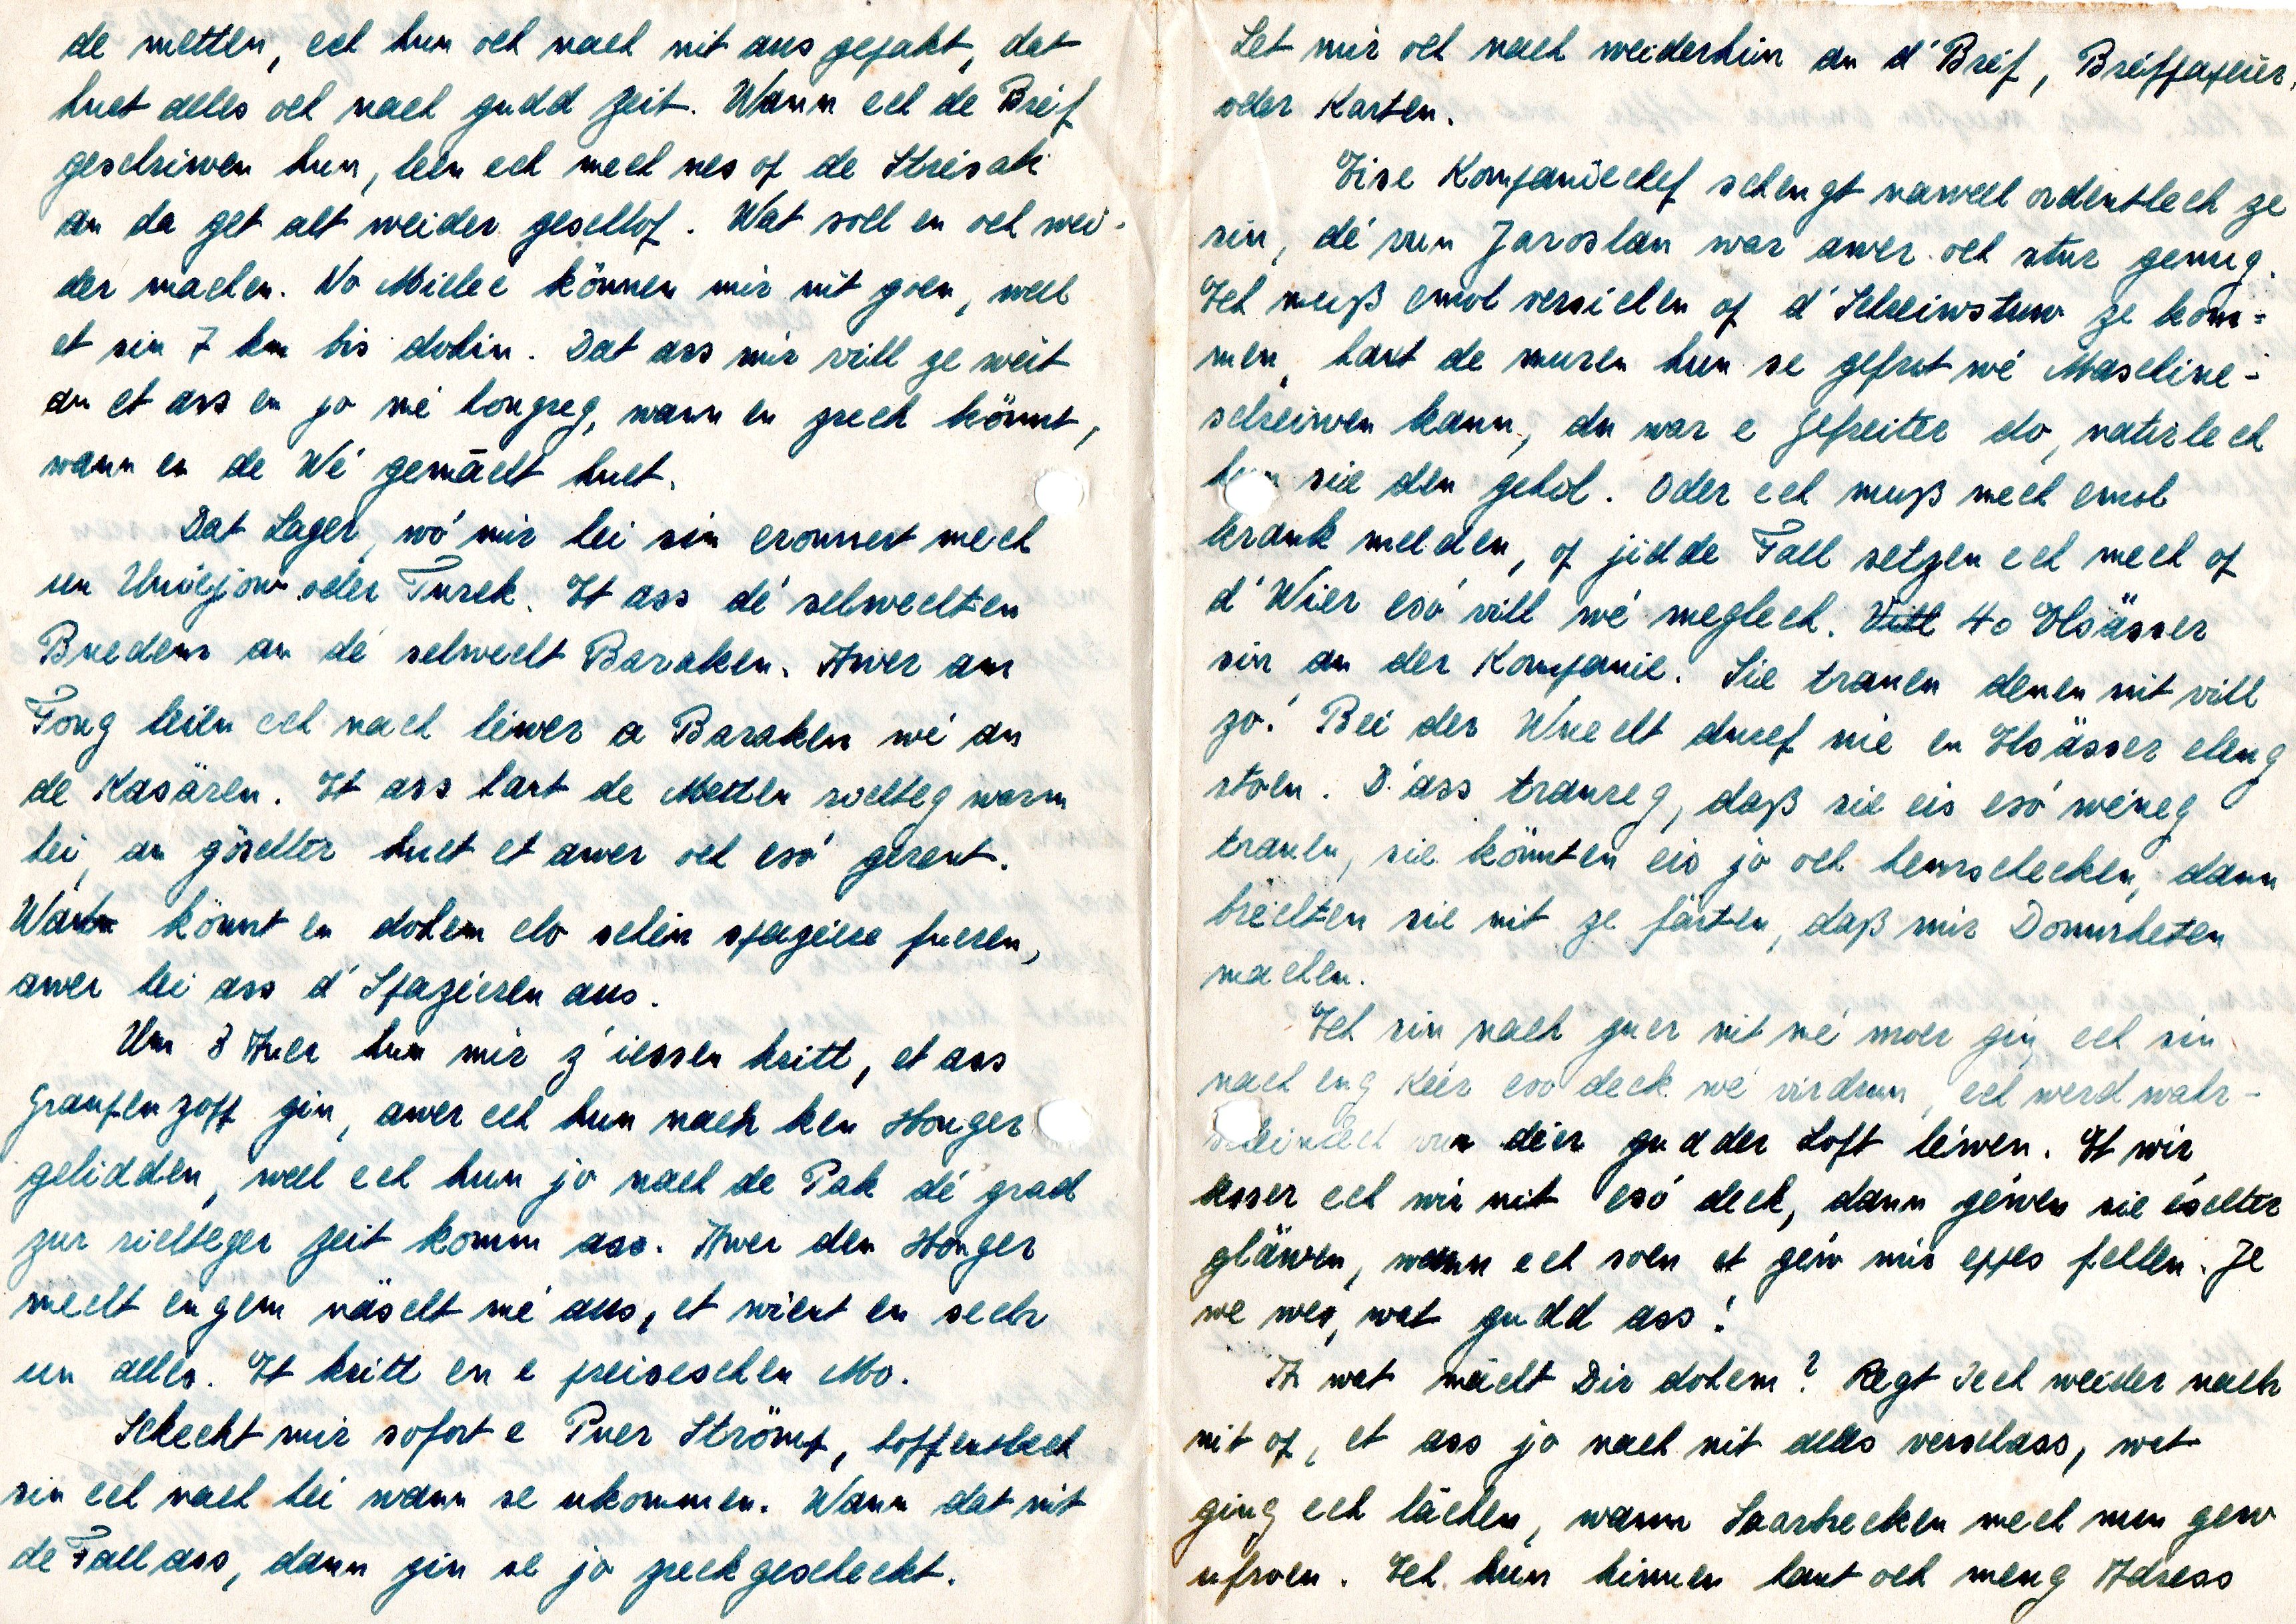 de metten, ech hun och nach nit aus gepakt, dat
huet alles och nach gudd Zeit. Wann ech de Bréf
geschriwen hun, leen ech mech nes of de Strésak
an da get alt weider geschlof. Wat soll en och wei-
der machen. No Mielec können mir nit goen, well
et sin 7 km bis dohin. Dat ass mir vill ze weit
an et ass en jo mé hongreg, wann en zreck kömmt,
wann en de Wé gemächt huet.
Dat Lager, wó mir hei sin eronnert mech
un Uniejow oder Turek. Et ass dé selwechten
Buedem an dé selwecht Baraken. Awer am
Fong leien ech nach léiwer a Baraken wé an
de Kasären. Et ass haut de Metten richteg warm
hei, an göschter huet et awer och esó gerent.
Wann könnt en dohem elo schéin spaziere fueren,
awer hei ass d'Spazieren aus.
Um 8 Auer hun mir z'iessen kritt, et ass
Graupenzopp gin, awer ech hun nach ken Honger
gelidden, well ech hun jo nach de Pak dé grad
zur richteger Zeit komm ass. Awer den Honger
mecht engem näscht mé aus, et wiert en sech
un alles. Et kritt en e preiseschen Mo.
Schéckt mir sofort e Puer Strömp, hoffentlech
sin ech nach hei wann se ukommen. Wann dat nit
de Fall ass, dann gin se jo zreckgescheckt.
Let mir och nach weiderhin an d'Bréf, Bréfpapéier,
oder Karten.
Eise Kompaniechef schengt nawell ordentlech ze
sin, dé vun Jaroslau war awer och stur genug.
Ech muß emol versichen of d'Schreiwstuw ze kom-
men, haut de muren hun se gefrot wé Maschine-
schreiwen kann, du war e Gefreiter do, natirlech
hun sie den geholl. Oder ech muß mech emol
krank melden, of jidde Fall setzen ech mech of
d'Wier esó vill wé meglech. 40 Elsässer
sin an der Kompanie. Sie trauen denen nit vill
zo! Bei der Wuecht duerf nie en Elsässer eleng
stoen. D'ass traureg, daß sie eis esó wéneg
trauen, sie könnten eis jo och hemschecken, dann
bréchten sie nit ze färten, daß mir Dommheten
machen.
Ech sin nach guer nit mé moer gin, ech sin
nach eng Kéier esó deck wé virdrun, ech werd wahr-
scheinlech vun déier gudder Loft léiwen. Et wir
besser ech wir nit esó deck, dann géiwen sie éischter
gläwen, wann ech soen et géiw mir eppes fehlen. Je
me wer, wat gudd ass!
A wat mächt Dir dohem? Regt Iech weider nach
nit of, et ass jo nach nit alles verschlass, wat
ging ech lächen, wann Saarbrecken mech nun gew
ufroen. Ech hun hinnen haut och meng Adress